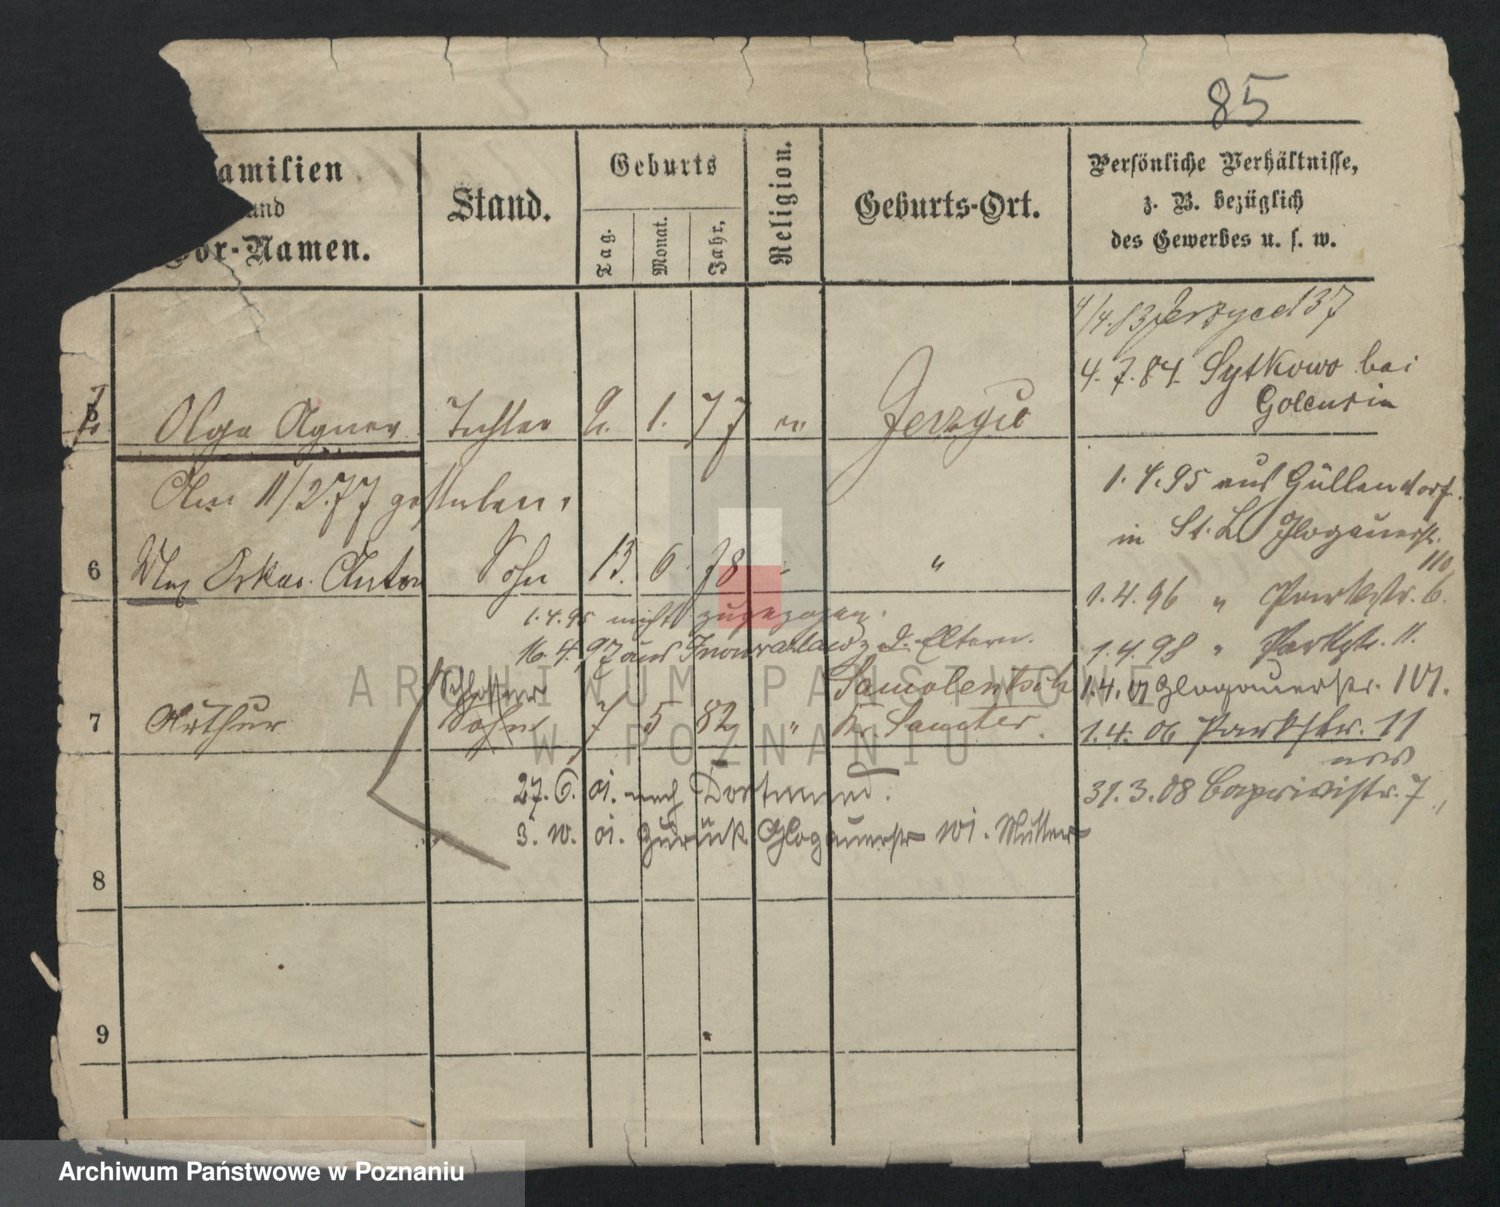 85
Familien
und
Vor-Namen.
Stand.
Geburts
Tag.
Monat.
Jahr.
Religion.
Geburts-Ort.
Persönliche Verhältnisse,
z. B. bezüglich
des Gewerbes u. s. w.
4/4.83 Jerzyce 137
4. 7. 84. Sytkowo bei
Golencin
Olga Agnes Tochter 2. 1. 77 Jerzyce
Am 11/2.77 gestorben.
1. 4. 95 aus Güllendorf
in St. L. Glogauerstr.
110
6 Max Oskar Anton Sohn 13. 6. 78 "
1.4.96 " Parkstr. 6.
1.4.95 nicht zugezogen.
16.4.97 aus Inowrazlaw z. d. Eltern.
1.4.98 " Parkstr. 11.
Schlosser Samolentsch
1.4.01 Glogauerstr. 101.
7 Arthur Sohn 7 5 82 " Kr. Samter.
1.4.06 Parkstr. 11
27. 6. 01. nach Dortmund.
31.3.08 Caprivistr. 7
3. 10. 01. zurück Glogauerstr 101. Mutter
8
9
ARCHIWUM PAŃSTWOWE
W POZNANIU
Archiwum Państwowe w Poznaniu